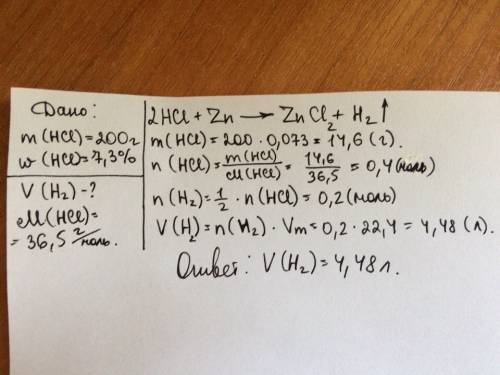 Дано:
m(HCl)=200г
w(HCl)=7,3%
V(H₂)-?
M(HCl)=
=36,5 г/моль.
2HCl + Zn → ZnCl₂ + H₂↑
m(HCl)=200·0,073=14,6(г).
n(HCl)=m(HCl)/M(HCl)=14,6/36,5=0,4(моль)
n(H₂)=1/2·n(HCl)=0,2(моль)
V(H₂)=n(H₂)·Vm=0,2·22,4=4,48(л).
Ответ: V(H₂)=4,48л.